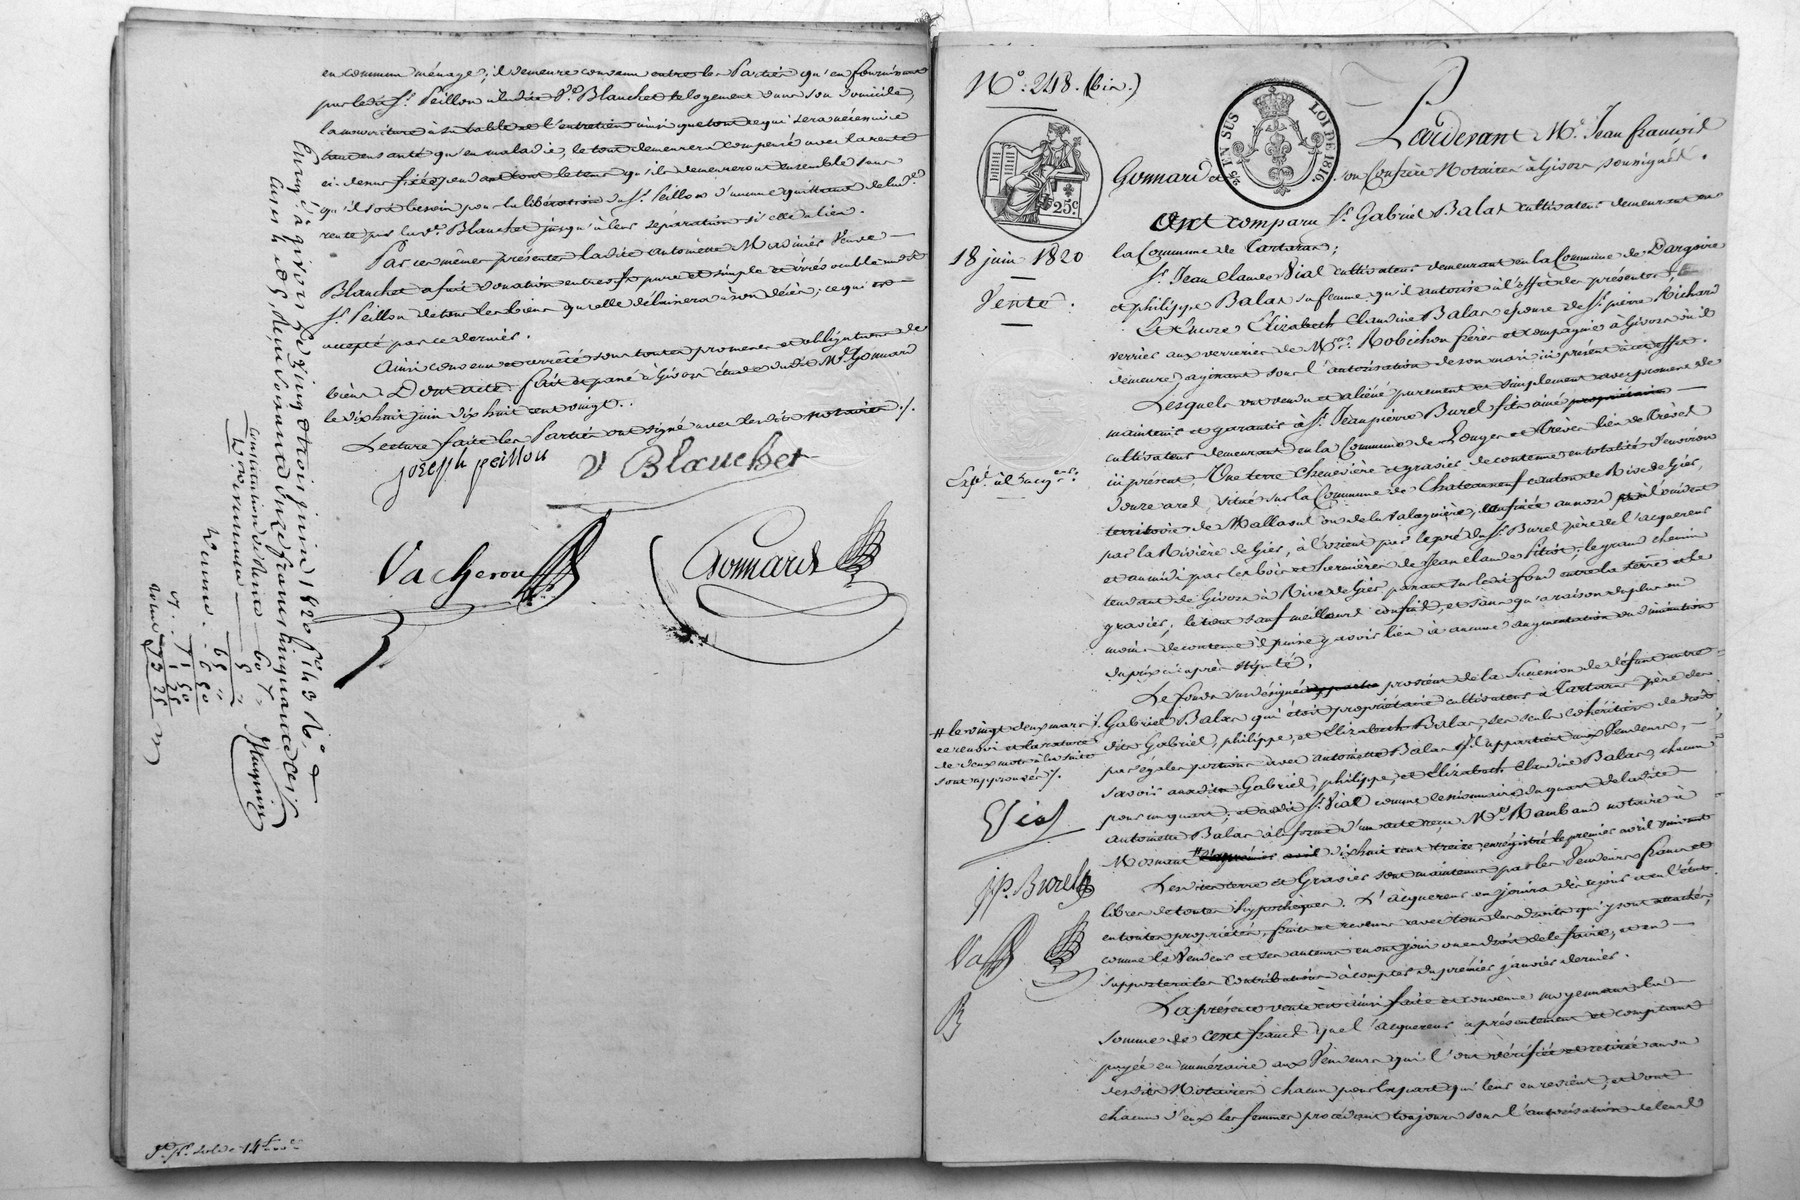 en commun ménage; il demeure convenu entre les Parties qu'en fournissant
par ledit Sr. Peillon à ladite Ve. Blanchet le logement dans son domicile,
la nourriture à sa table et l'entretien ainsi que tout ce qui sera nécessaire
tant en santé qu'en maladie, le tout demeurera compensé avec la rente
ci-dessus fixée pendant tout le tems qu'ils demeureront ensemble sans
qu'il soit besoin pour la libération du Sr. Peillon d'aucune quittance de lad.
rente par lad. Ve. Blanchet jusqu'à leur séparation si elle a lieu.
Par ces mêmes présentes ladite antoinette Veuve
Blanchet a fait donation entre vifs pure et simple et irrévocable audit
Sr. Peillon de tous les biens qu'elle délaissera à son décès; ce qui est
accepté par ce dernier.
Ainsi convenu et arrêté sous toutes promesses et obligations de
biens. Dont acte fait et passé à Givors étude dudit Me. Gonnard
le dix huit juin dix huit cent vingt.
Lecture faite les Parties ont signé avec lesdits notaires ./.
joseph peillon
V Blanchet
Vacheron
Gonnard
Enreg.é à givors le vingt trois juin 1820 fo. 143 Ro.
Constitution de rente 60
Donation
65
6 50
71 50
No. 248. (bis.)
25 EN SUS
LOI DE 1816.
25c
18 juin 1820
Vente.
Pardevant Me. Jean françois
Gonnard et son Confrère Notaires à Givors soussignés.
Ont comparu Sr. Gabriel Balas cultivateur demeurant en
la Commune de Tartaras;
Sr. Jean Claude Vial cultivateur demeurant en la Commune de Dargoire
et philippe Balas sa femme qu'il autorise à l'effet des présentes;
Et Encore Elizabeth Claudine Balas epouse de Sr. pierre Richard
verrier aux verreries de Mrs. Robichon frères et compagnie à Givors où il
demeure, agissant sous l'autorisation de son mari ici présent à cet effet.
Lesquels ont vendu et aliéné purement et simplement avec promesse de
maintenir et garantir à Sr. Jean pierre Burel fils ainé propriétaire
cultivateur demeurant en la Commune de Longes et Trèves lieu de Trèves
ici présent, Une terre Chenevière et gravier de contenue en totalité d'environ
douze ares, située sur la Commune de Chateauneuf canton de Rive de Gier,
territoire de Mallasul ou de la Valognière, confinée au nord et à l'occident
par la Rivière de Gier, à l'orient par le pré du Sr. Burel père de l'acquereur
et au midi par les bois et hermières de Jean claude ; le grand chemin
tendant de Givors à Rive de Gier, passant sur ledit fond entre la terre et le
gravier, le tout sauf meilleurs confins, et sans qu'à raison de plus ou
moins de contenue il puisse y avoir lieu à aucune augmentation ou diminution
du prix ci après stipulé.
Le fonds sus désigné provient de la succession de défunt autre
Gabriel Balas qui étoit propriétaire cultivateur à Tartaras père des
dits Gabriel, philippe, et Elizabeth Balas, ses seuls cohéritiers de droit
par égales portions avec antoinette Balas. Il appartient aux Vendeurs,
savoir auxdits Gabriel, philippe, et Elizabeth Claudine Balas, chacun
pour un quart; et audit Sr. Vial comme cessionnaire du quart de ladite
antoinette Balas à la forme d'un acte reçu Me. Rambaud notaire à
Mornant # dix huit cent treize enregistré le premier avril suivant
Lesdites terre et Gravier sont maintenus par les Vendeurs francs et
libres de toutes hypothèques. L'acquereur en jouira dès ce jour et en l'état
en toutes propriétés, fruits et revenus avec tous les droits qui y sont attachés,
comme les Vendeurs et ses auteurs en ont joui ou en droit de le faire, et en
supportera les contributions à compter du premier janvier dernier.
La présente vente est ainsi faite et convenue moyennant la
somme de cent francs que l'acquereur a présentement et comptant
payée en numéraire aux Vendeurs qui l'ont vérifiée et retirée au vu
desdits Notaires chacun pour la part qui leur en revient; et dont
chacun d'eux les femmes procédant toujours sous l'autorisation de leurs
# le vingt deux mars ./.
ce renvoi et la rature
de deux mots à la suite
sont approuvés ./.
jp. Burel
B